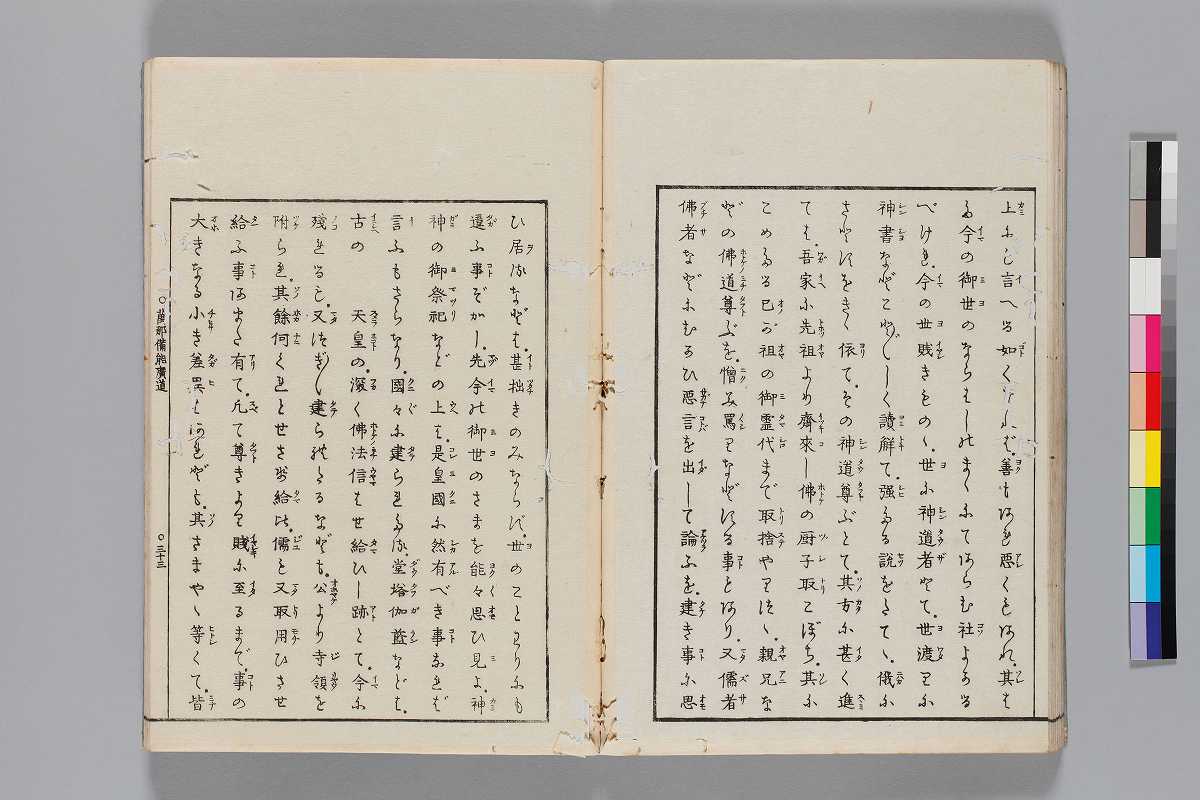 上にも言へる如くなれば、善もあれ悪くもあれ、其は
今の御世のならはしのまくにてあらむ社よかる
べけれ、今の世賤きものゝ、世に神道者とて、世渡りに
神書などこと〴〵しく讀解て、强たる説をたてゝ、俄に
さとすをきく依て、その神道尊ぶとて、其方に甚く進
ては、吾家に先祖より齊來し佛の厨子取こぼち、其に
こめたる已が祖の御霊代まで取捨やりつゝ、親兄な
どの佛道尊ぶを、憎み罵りなどする事とあり、又儒者
佛者などにむかひ悪言を出して論ふを、建き事に思
ひ居るなどは、甚拙きのみならず、世のことわりにも
違ふ事ぞかし、先今の御世のさまを能々思ひ見よ、神
神の御祭祀などの上は、是皇國に然有べき事なれば
言ふもさらなり、國々に建られたる、堂塔伽藍なども、
古の　天皇の、深く佛法信はせ給ひし跡とて、今に
殘れるを、又つぎ〳〵建られたるなども、公より寺領を
附られ、其餘何くれとせさせ給ひ、儒を又取用ひさせ
給ふ事あまた有て、凡て尊きより賤に至るまで、事の
大きなる小き差異はあれども、其さまやゝ等くて、皆
〇萬那備能廣道
〇三十三